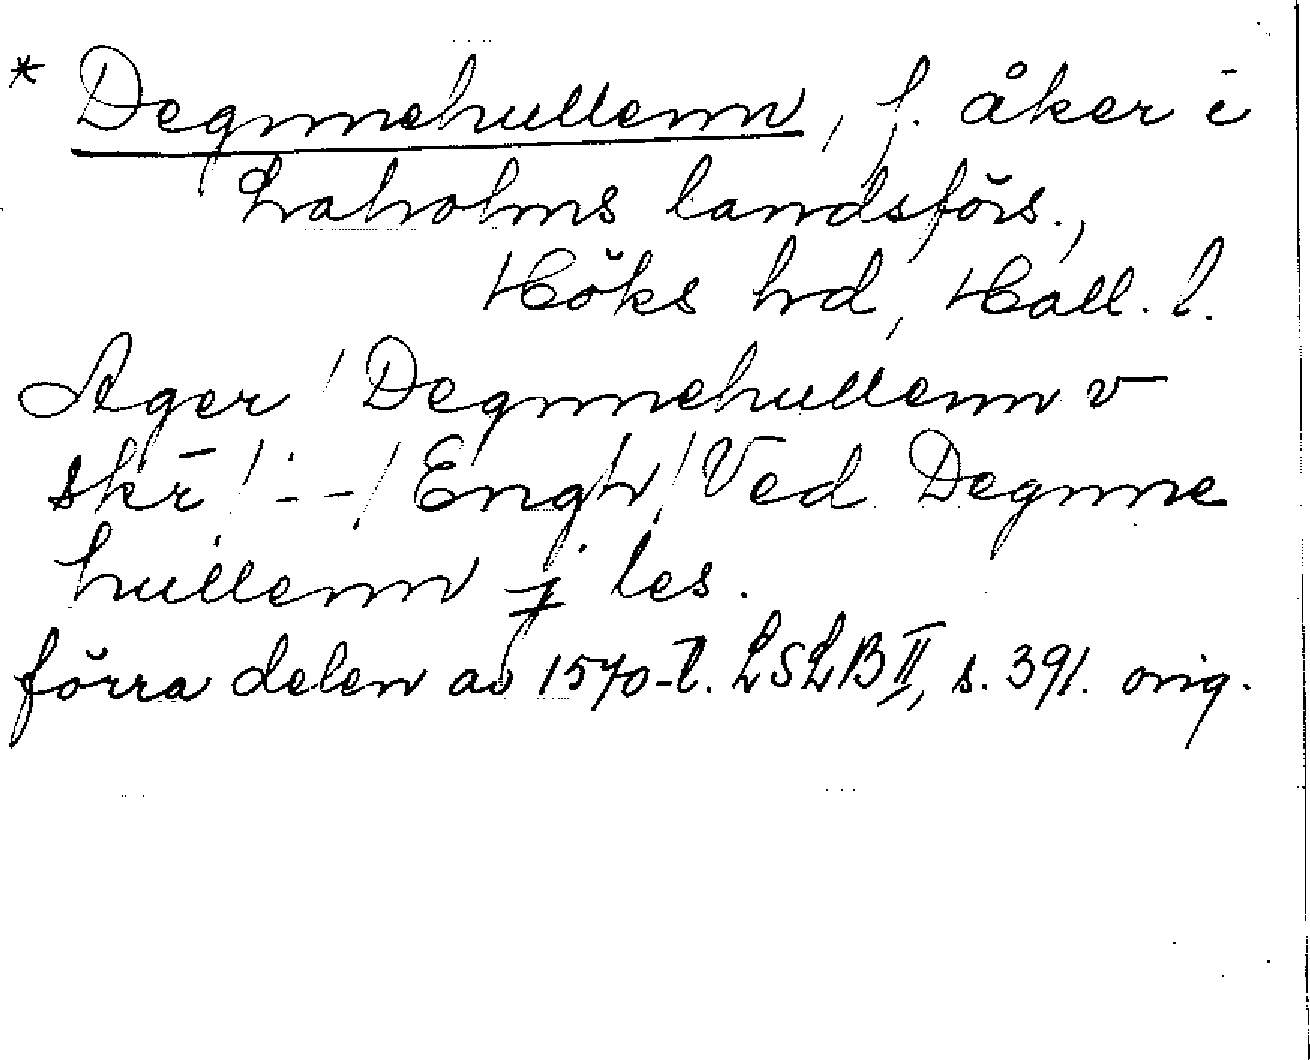 * Degnnehullenn, f. åker i
Laholms landsförs.,
Höks hd, Hall. l.
Ager / Degnnehullenn v
skr̄ / - - / Engh / Ved Degnne
hullenn j les.
förra delen av 1570-t. LSLB II, s. 391. orig.